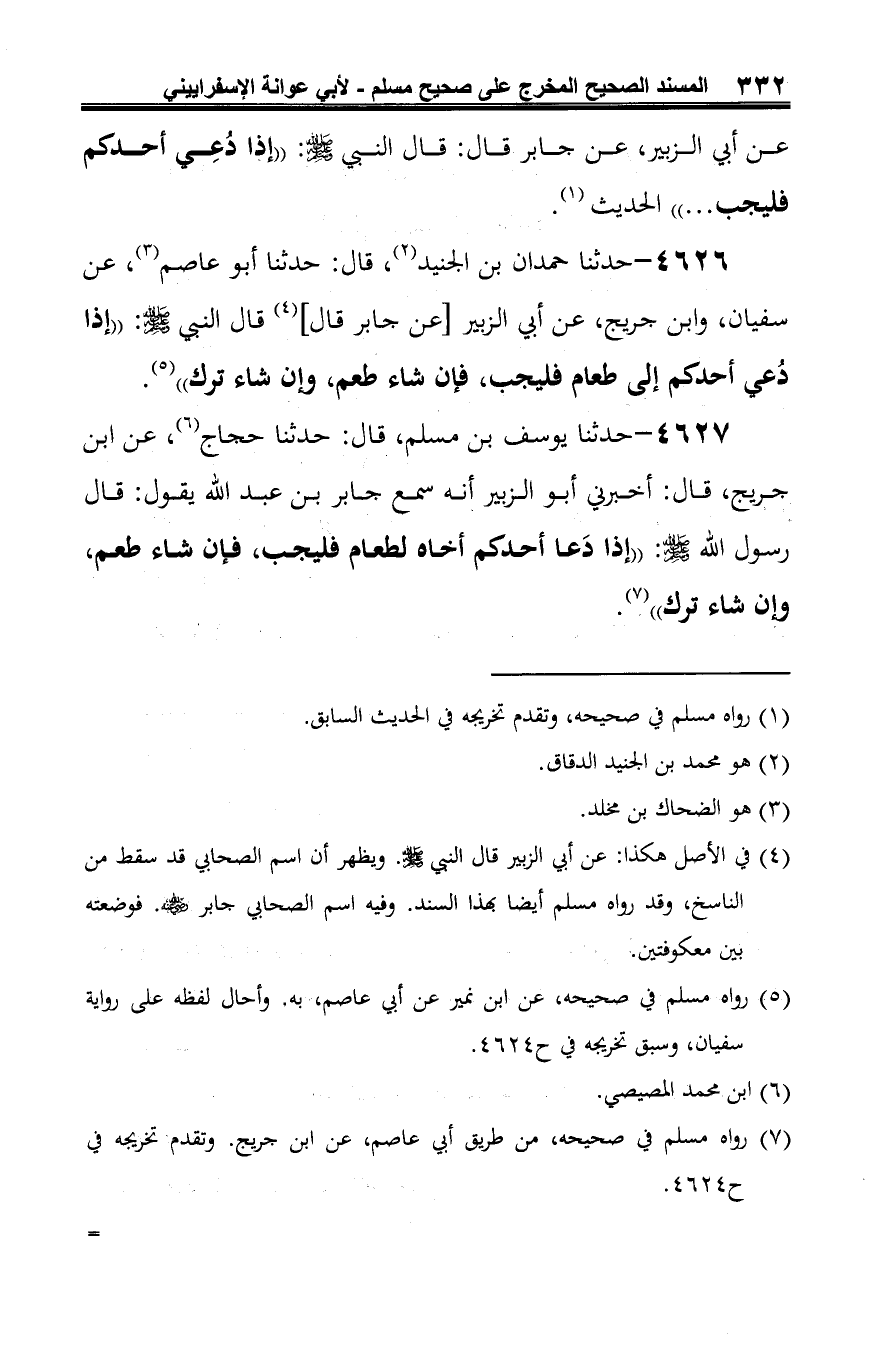 ٣٣٢ المسند الصحيح المخرج على صحيح مسلم - لأبي عوانة الإسفراييني
عن أبي الزبير، عن جابر قال: قال النبي ﷺ: ((إذا دُعِي أحدكم
فليجب...)) الحديث (١).
٤٦٢٦-حدثنا حمدان بن الجنيد(٢)، قال: حدثنا أبو عاصم(٣)، عن
سفيان، وابن جريج، عن أبي الزبير [عن جابر قال](٤) قال النبي ﷺ: ((إذا
دُعي أحدكم إلى طعام فليجب، فإن شاء طعم، وإن شاء ترك))(٥).
٤٦٢٧-حدثنا يوسف بن مسلم، قال: حدثنا حجاج(٦)، عن ابن
جريج، قال: أخبرني أبو الزبير أنه سمع جابر بن عبد الله يقول: قال
رسول الله ﷺ: ((إذا دَعا أحدكم أخاه لطعام فليجب، فإن شاء طعم،
وإن شاء ترك))(٧).
(١) رواه مسلم في صحيحه، وتقدم تخريجه في الحديث السابق.
(٢) هو محمد بن الجنيد الدقاق.
(٣) هو الضحاك بن مخلد.
(٤) في الأصل هكذا: عن أبي الزبير قال النبي ﷺ. ويظهر أن اسم الصحابي قد سقط من
الناسخ، وقد رواه مسلم أيضا بهذا السند. وفيه اسم الصحابي جابر ﵁. فوضعته
بين معكوفتين.
(٥) رواه مسلم في صحيحه، عن ابن نمير عن أبي عاصم، به. وأحال لفظه على رواية
سفيان، وسبق تخريجه في ح٤٦٢٤.
(٦) ابن محمد المصيصي.
(٧) رواه مسلم في صحيحه، من طريق أبي عاصم، عن ابن جريج. وتقدم تخريجه في
ح٤٦٢٤.
=